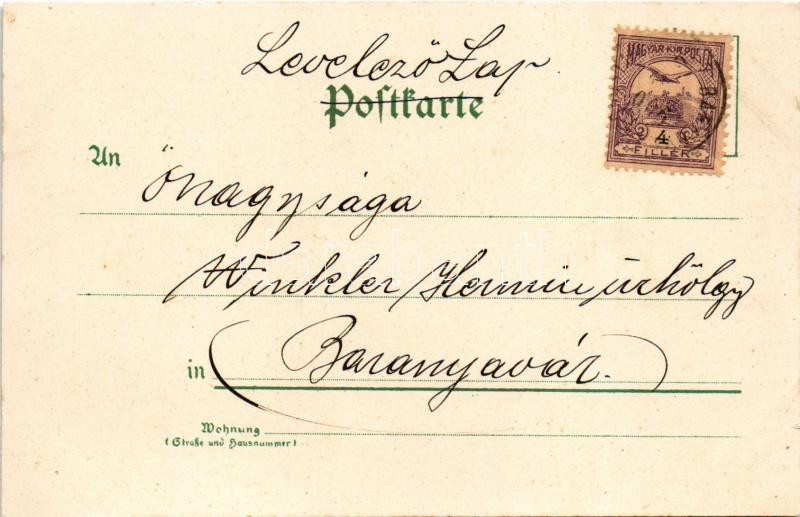 Levelező Lap
Postkarte
MAGYAR·KIR·POSTA
4
FILLÉR
An
Őnagysága
Winkler Hermin úrhölgy
in Baranyavár.
Wohnung
(Straße und Hausnummer)